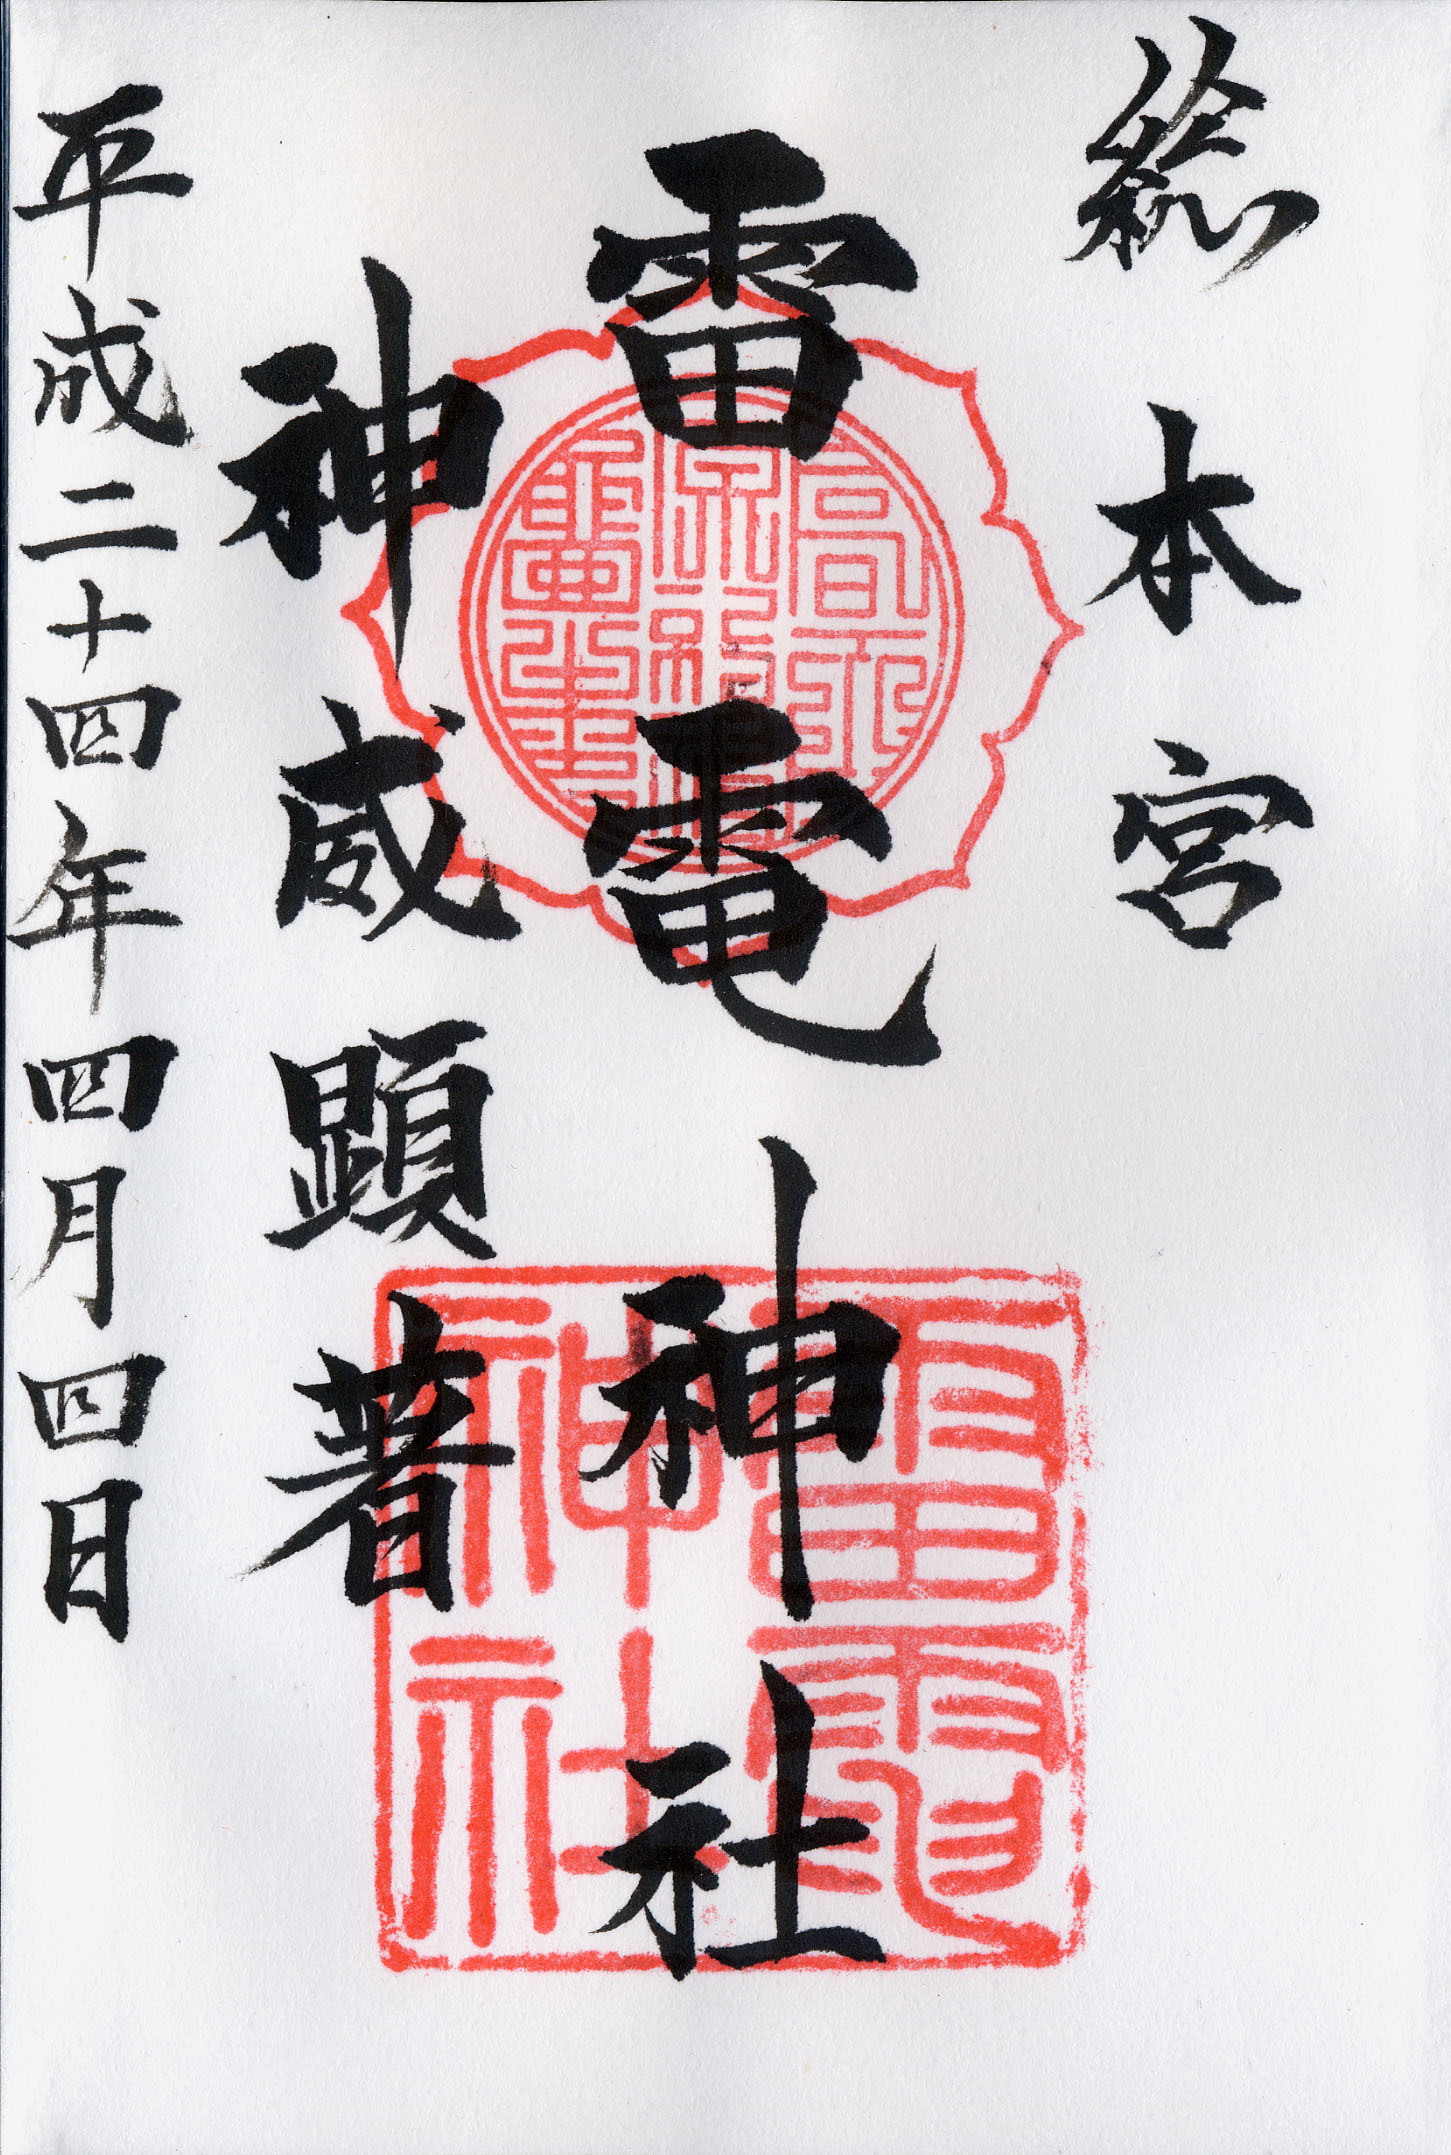 総本宮
雷電神社
神威顕著
平成二十四年四月四日
雷電神社